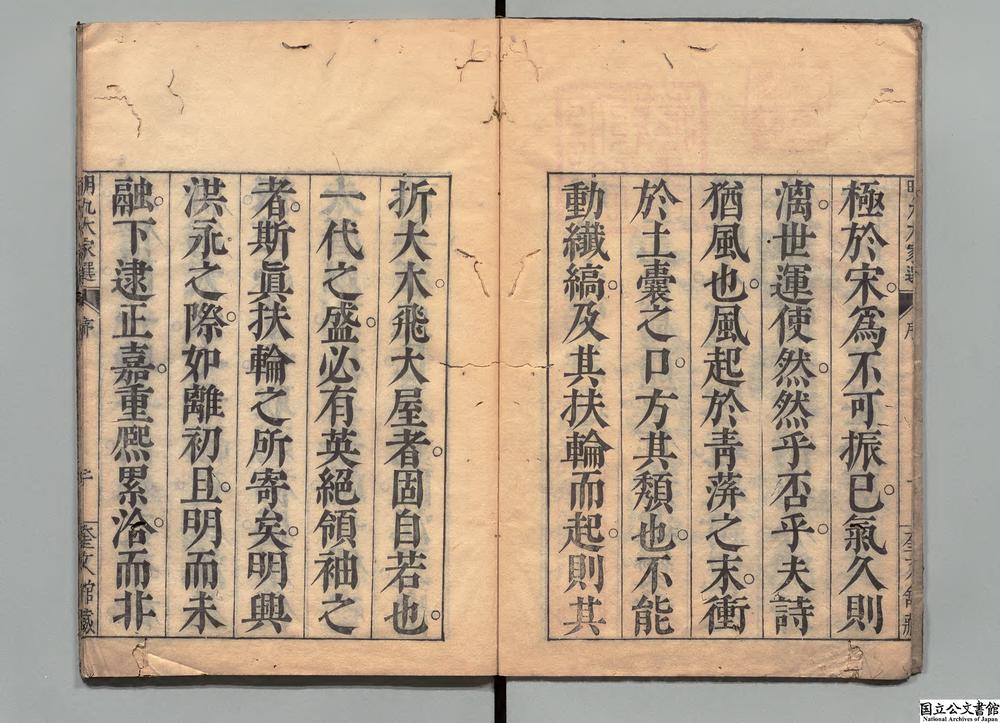 極於宋。爲不可振已。氣久則
漓。世運使然。然乎否乎。夫詩
猶風也。風起於青蓱之末。衝
於土囊之口。方其頹也。不能
動纖縞。及其扶輪而起。則其
折大木。飛大屋者。固自若也。
一代之盛。必有英絕領袖之
者。斯眞扶輪之所寄矣。明興
洪永之際。如離初旦。明而未
融。下逮正嘉。重熈累洽。而非
明九大家選
序
奎文館藏
国立公文書館
National Archives of Japan